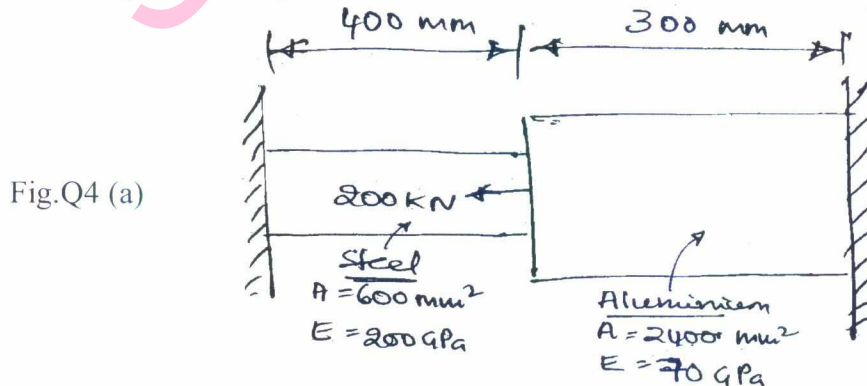 400 mm
300 mm
Fig.Q4 (a)
200 KN
Steel
A = 600 mm²
E = 200 GPa
Aluminium
A = 2400 mm²
E = 70 GPa